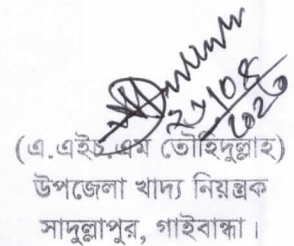 (এ.এইচ.এম তৌহিদুল্লাহ)
উপজেলা খাদ্য নিয়ন্ত্রক
সাদুল্লাপুর, গাইবান্ধা।